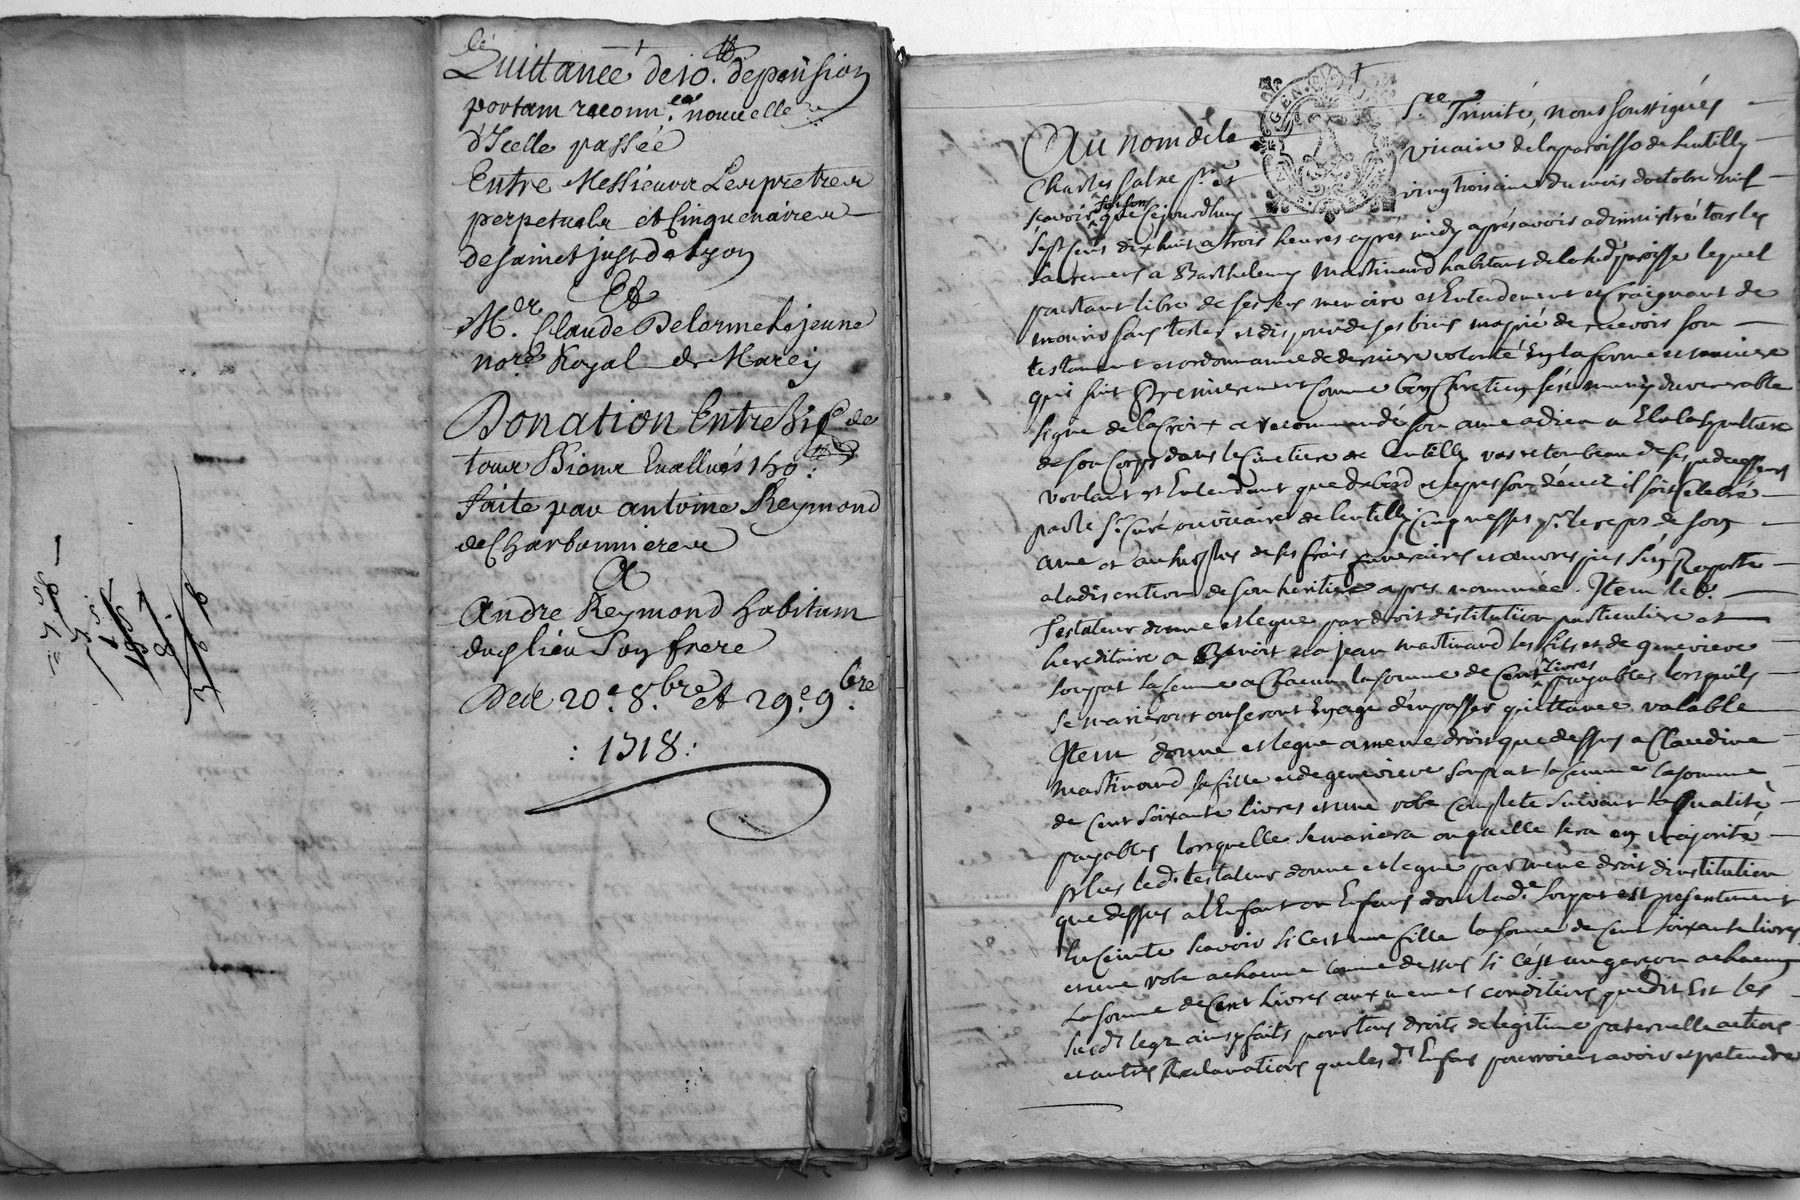 Quittance de 10.ᵗᵗ de pention
portam reconn.ᶜᵉ nouvelle
d'Icelle passée
Entre Messieurs Les pretres
perpetuels et Cinquenaires
de sainct just de Lyon
Et
M.ᵉʳ Claude Delorme Le jeune
noʳᵉ Royal de Marcy
Donation Entre Vifs de
tous Biens Evallués 150.ᵗᵗ
faite par antoine Reymond
de Charbonnieres
A
Andre Reymond habitam
dud lieu Son frere
Des 20.ᵉ 8.ᵇʳᵉ et 29.ᵉ 9.ᵇʳᵉ
: 1718 :
Au nom de la Sᵗᵉ Trinité, nous soussignés
Charles vicaire de la paroisse de Lentilly
scavoir faisons que cejourdhuy vingtroisieme du mois doctobre mil
sept cens dix huit a trois heures apres midy aprés avoir administré tous les
sacremens a Barthelemy Martinand habitant de lad paroisse lequel
pourtant libre de ses sens memoire et Entendement et Craignant de
mourir sans tester et disposer de ses biens ma prié de recevoir son
testament et ordonnance de derniere volonté En la forme et maniere
qui suit Premierement comme bon Chretien s'est muny du venerable
signe de la Croix a recommandé son ame a dieu a Elu la sepulture
de son Corps dans le Cimetiere de Lentilly au tombeau de ses predecesseurs
voulant et Entendant que dabord et apres son décéz il soit celebré
par le Sʳ Curé ou vicaire de lentilly cinq messes pʳ le repos de son
ame et au surplus de ses frais funeraires et œuvres pies s'en Raporte
a la discretion de son heritiere apres nommée. Item led.
Testateur donne et legue par droit distitution particuliere et
hereditaire a Benoit et a jean Martinand ses fils et de genevieve
sa femme a Chacun la somme de Cent livres payables lorsquils
se marieront ou seront En age d'en passer quittance valable
Item donne et legue a meme droit que dessus a Claudine
Martinand sa fille et de genevieve sa femme la somme
de Cent soixante livres et une robe complete suivant sa qualité
payables lorsquelle se mariera ou quelle sera en majorité
plus led. testateur donne et legue par meme droit dinstitution
que dessus a l'Enfant ou Enfans dont lad.ᵉ est presentement
Enceinte scavoir si cest une fille la somme de Cent soixante livres
et une robe a chacune comme dessus si c'est un garcon a chacun
La somme de Cent Livres aux memes conditions que dit Est les
susd. legz ainsy faits pour tous droits de legitime paternelle actions
et autres Reclamations que lesd. Enfans pourroient avoir et pretendre